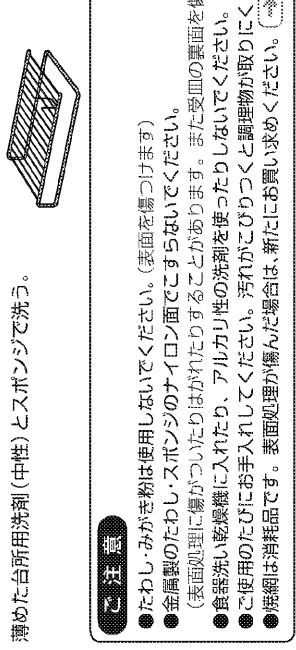 薄めた台所用洗剤(中性)とスポンジで洗う。
ご注意
●たわし・みがき粉は使用しないでください。(表面を傷つけます)
●金属製のたわし・スポンジのナイロン面でこすらないでください。
(表面処理に傷がついたりはがれたりすることがあります。また受皿の裏面を傷
●食器洗い乾燥機に入れたり、アルカリ性の洗剤を使ったりしないでください。
●ご使用のたびにお手入れしてください。汚れがこびりつくと調理物が取りにく
●焼網は消耗品です。表面処理が傷んだ場合は、新たにお買い求めください。